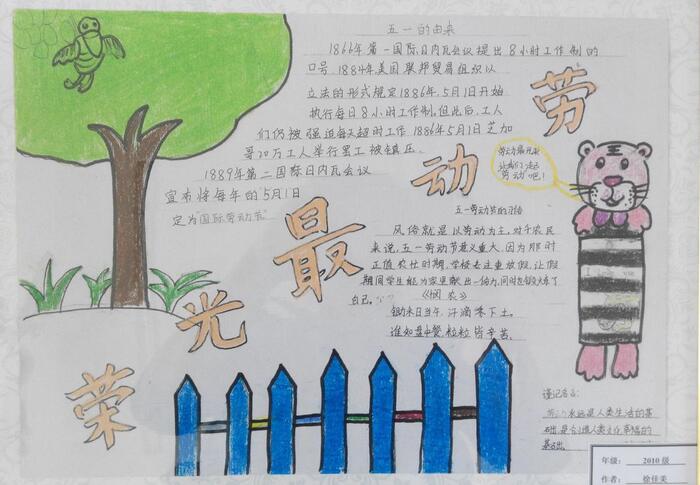 五一的由来
1866年第一国际日内瓦会议提出8小时工作制的
口号.1884年美国联邦贸易组织以
立法的形式规定1886年,5月1日开始
执行每日8小时工作制,但此后,工人
们仍被强迫每天超时工作.1886年5月1日芝加
哥20万工人举行罢工被镇压.
1889年第二国际日内瓦会议
宣布将每年的5月1日
定为"国际劳动节"
劳动最光荣
劳动最光荣
让我们一起
"劳动"吧!
五一劳动节的习俗
风俗就是以劳动为主,对于农民
来说,五一劳动节意义重大,因为那时
正值农忙时期,学校专注重放假,让假
期间学生能为家里献出一份力,同时也锻炼了
自己。
《悯农》
锄禾日当午,汗滴禾下土。
谁知盘中餐,粒粒皆辛苦。
谨记名言:
劳动永远是人类生活的基
础,是创造人类文化幸福的
基础.
年级: 2010级
作者: 徐佳美